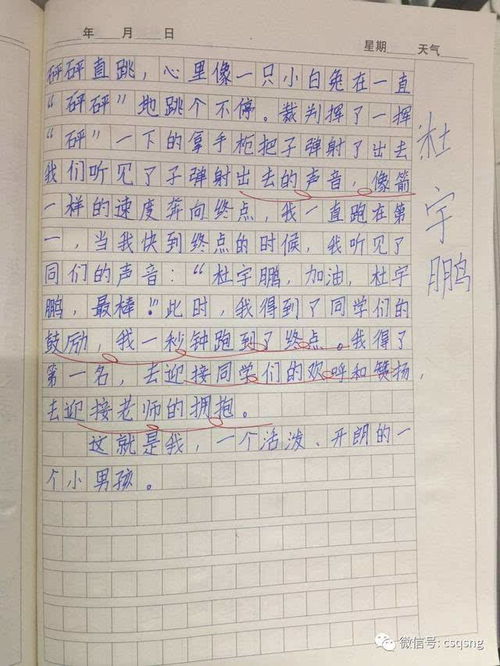 年 月 日 星期 天气
砰砰直跳，心里像一只小白兔在一直
“砰砰”地跳个不停。裁判挥了一挥
“砰”一下的拿手枪把子弹射了出去
我们听见了子弹射出去的声音，像箭
一样的速度奔向终点，我一直跑在第
一，当我快到终点的时候，我听见了
同们的声音：“杜宇鹏，加油，杜宇
鹏，最棒！”此时，我得到了同学们的
鼓励，我一秒钟跑到了终点。我得了
第一名，去迎接同学们的欢呼和赞扬，
去迎接老师的拥抱。
这就是我，一个活泼、开朗的一
个小男孩。
杜宇鹏
微信号: csqsng